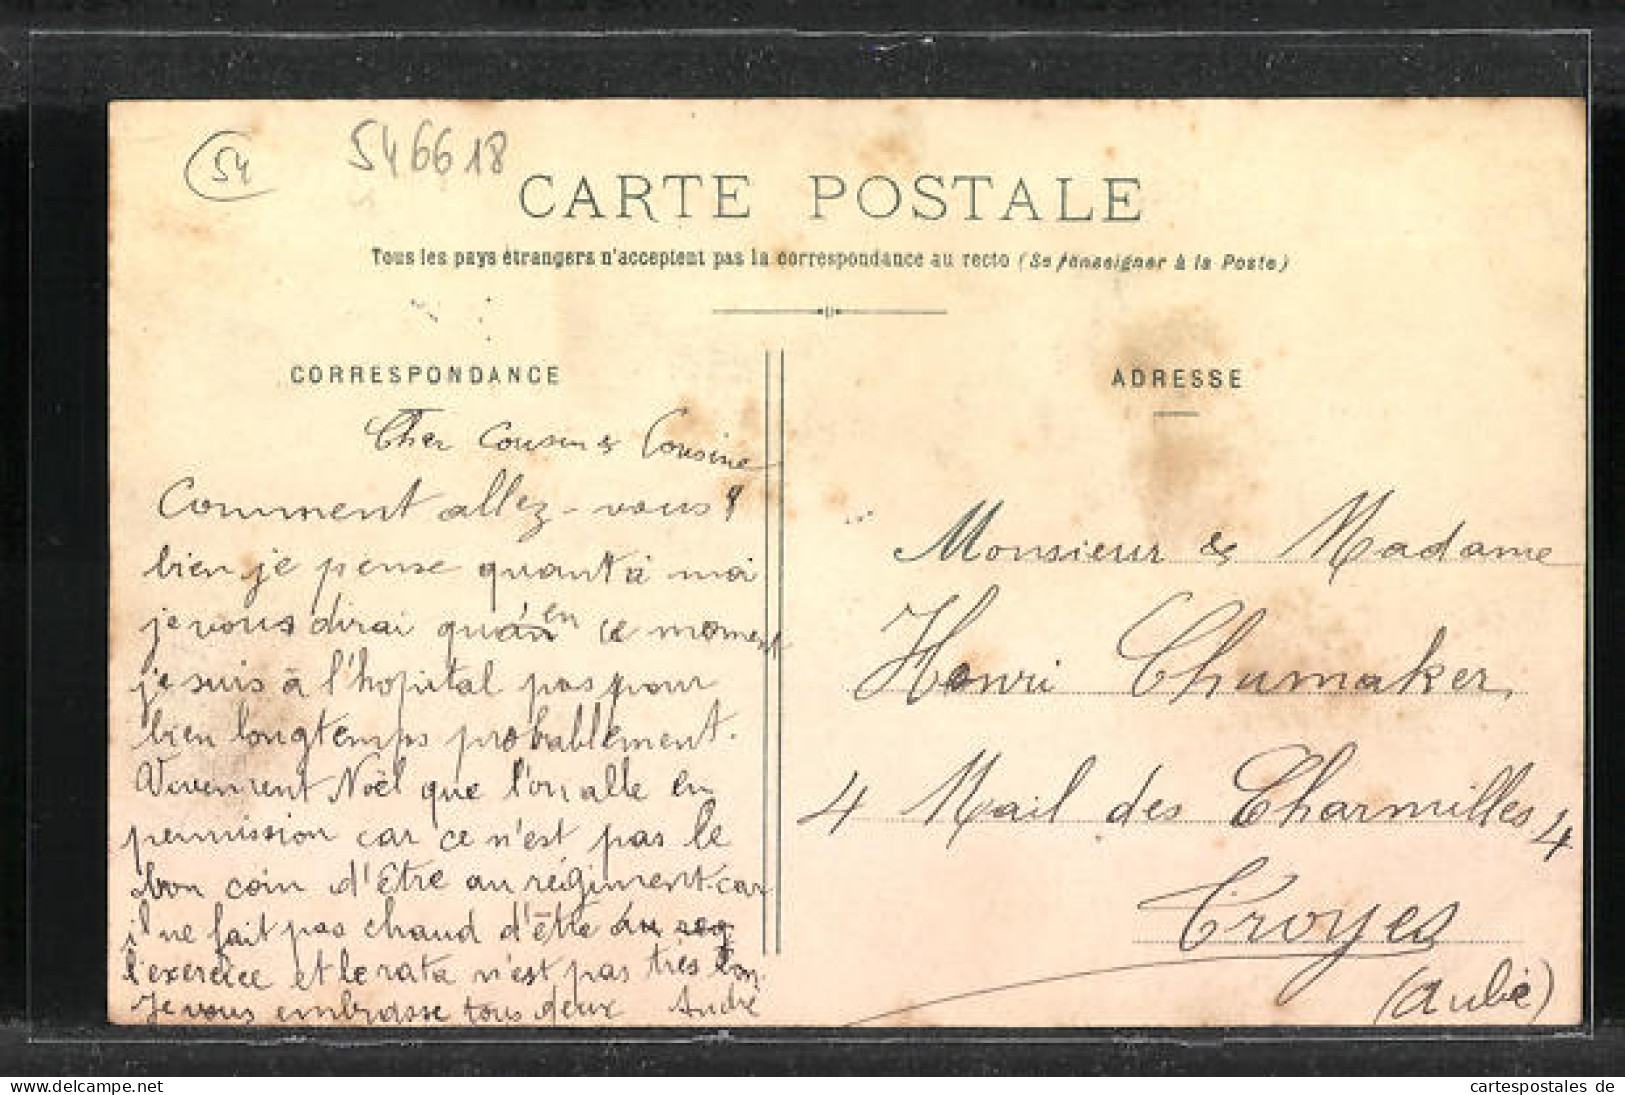 54
546618
CARTE POSTALE
Tous les pays étrangers n'acceptent pas la correspondance au recto (Se renseigner à la Poste)
CORRESPONDANCE
Cher Cousin & Cousine
Comment allez-vous?
bien je pense quant à moi
je vous dirai qu'en ce moment
je suis à l'hopital pas pour
bien longtemps probablement.
Vivement Noël que l'on alle en
permission car ce n'est pas le
bon coin d'Etre au régiment car
il ne fait pas chaud d'être au
l'exercice et le rata n'est pas très bon.
Je vous embrasse tous deux André
ADRESSE
Monsieur & Madame
Henri Chumaker,
4 Mail des Charmilles 4
Troyes
(Aube)
www.ansichtskartenversand.com
cartespostales de